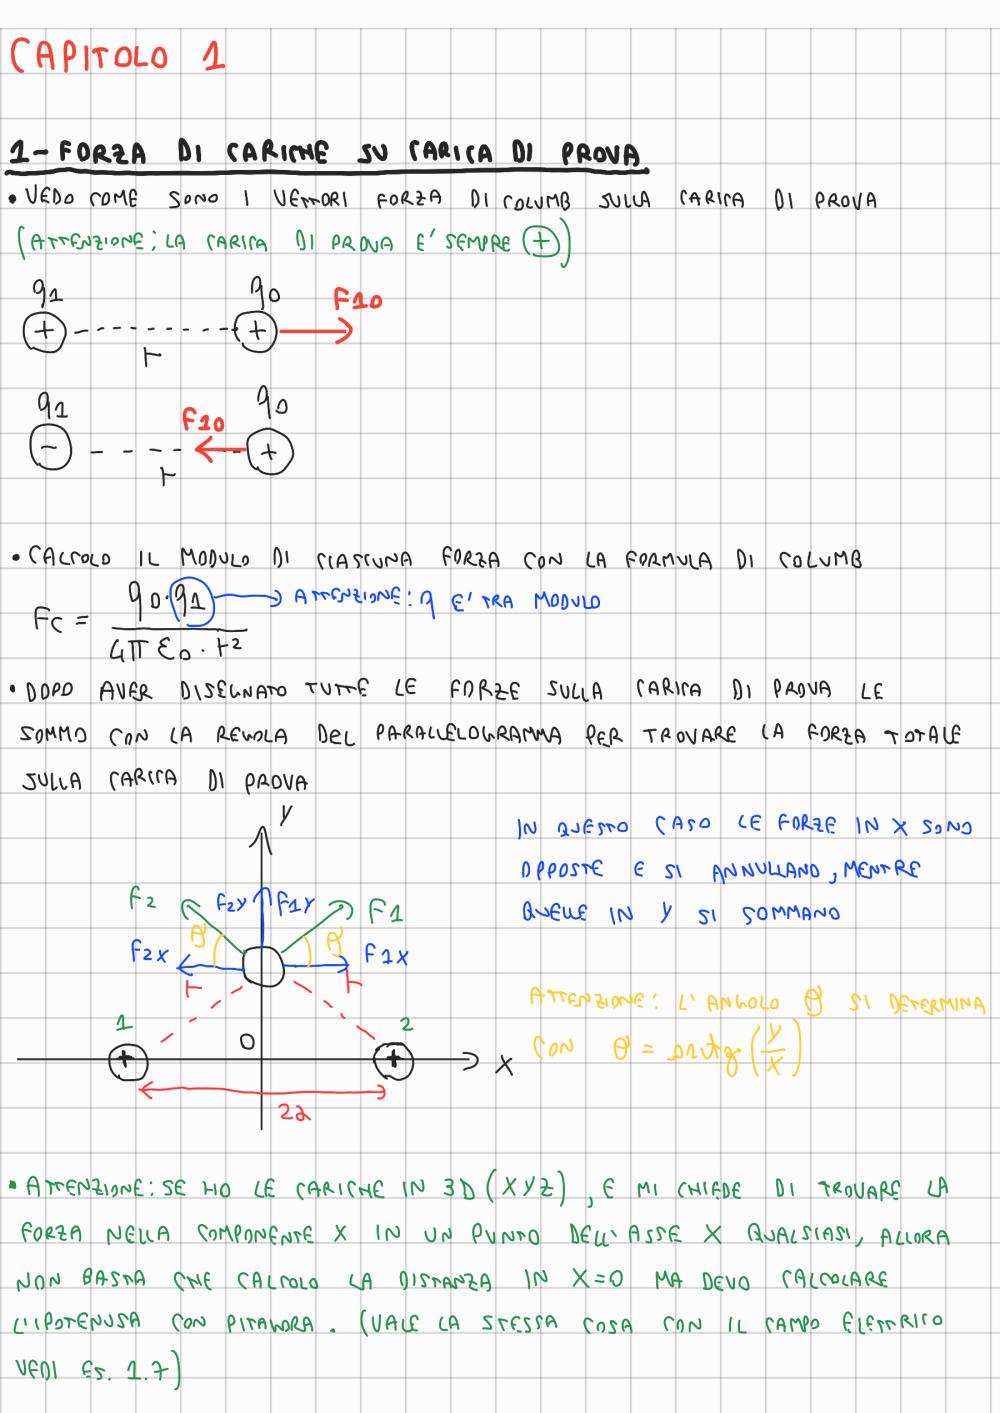 CAPITOLO 1
1- FORZA DI CARICHE SU CARICA DI PROVA
• VEDO COME SONO I VETTORI FORZA DI COLUMB SULLA CARICA DI PROVA
(ATTENZIONE: LA CARICA DI PROVA E' SEMPRE +)
q1 q0 F10
+ + r
q1 q0
F10
- + r
• CALCOLO IL MODULO DI CIASCUNA FORZA CON LA FORMULA DI COLUMB
Fc = q0·q1 / 4π ε0 · r² → ATTENZIONE: q E' TRA MODULO
• DOPO AVER DISEGNATO TUTTE LE FORZE SULLA CARICA DI PROVA LE
SOMMO CON LA REGOLA DEL PARALLELOGRAMMA PER TROVARE LA FORZA TOTALE
SULLA CARICA DI PROVA
y
IN QUESTO CASO LE FORZE IN X SONO
OPPOSTE E SI ANNULLANO, MENTRE
QUELLE IN Y SI SOMMANO
F2 F2y F1y F1
θ θ
F2x F1x
r r
ATTENZIONE: L'ANGOLO θ SI DETERMINA
CON θ = arctg (y/x)
1 2
+ O + X
2a
• ATTENZIONE: SE HO LE CARICHE IN 3D (XYZ), E MI CHIEDE DI TROVARE LA
FORZA NELLA COMPONENTE X IN UN PUNTO DELL'ASSE X QUALSIASI, ALLORA
NON BASTA CHE CALCOLO LA DISTANZA IN X=0 MA DEVO CALCOLARE
L'IPOTENUSA CON PITAGORA. (VALE LA STESSA COSA CON IL CAMPO ELETTRICO
VEDI ES. 1.7)